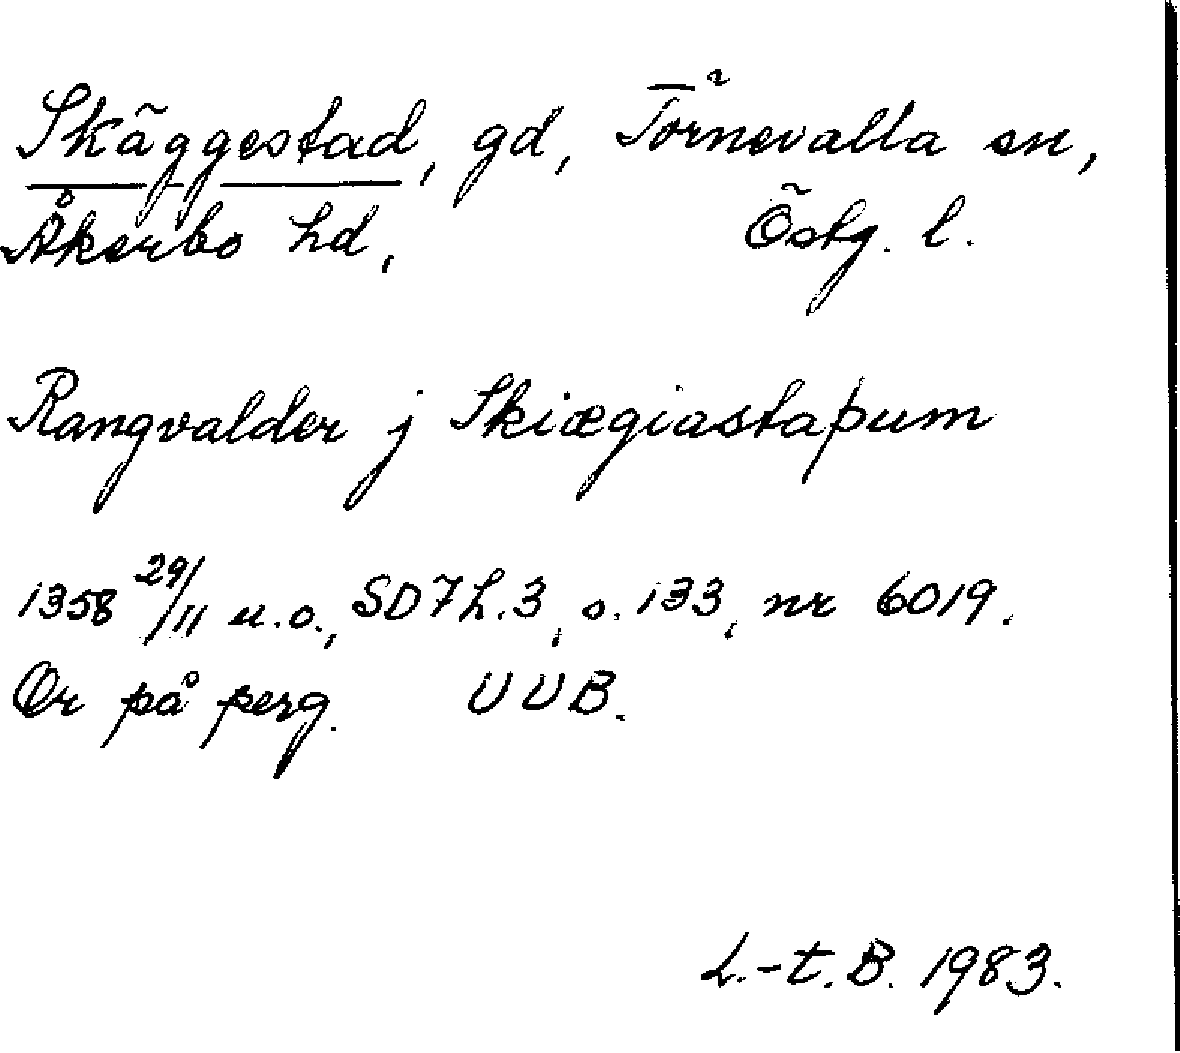 Skäggestad, gd, Törnevalla sn,
Åkerbo hd, Östg. l.
Rangvalder j Skiægiastaþum
1358 29/11 u.o., SD7h.3, s. 133, nr 6019.
Or på perg. UUB.
L.-t. B. 1983.